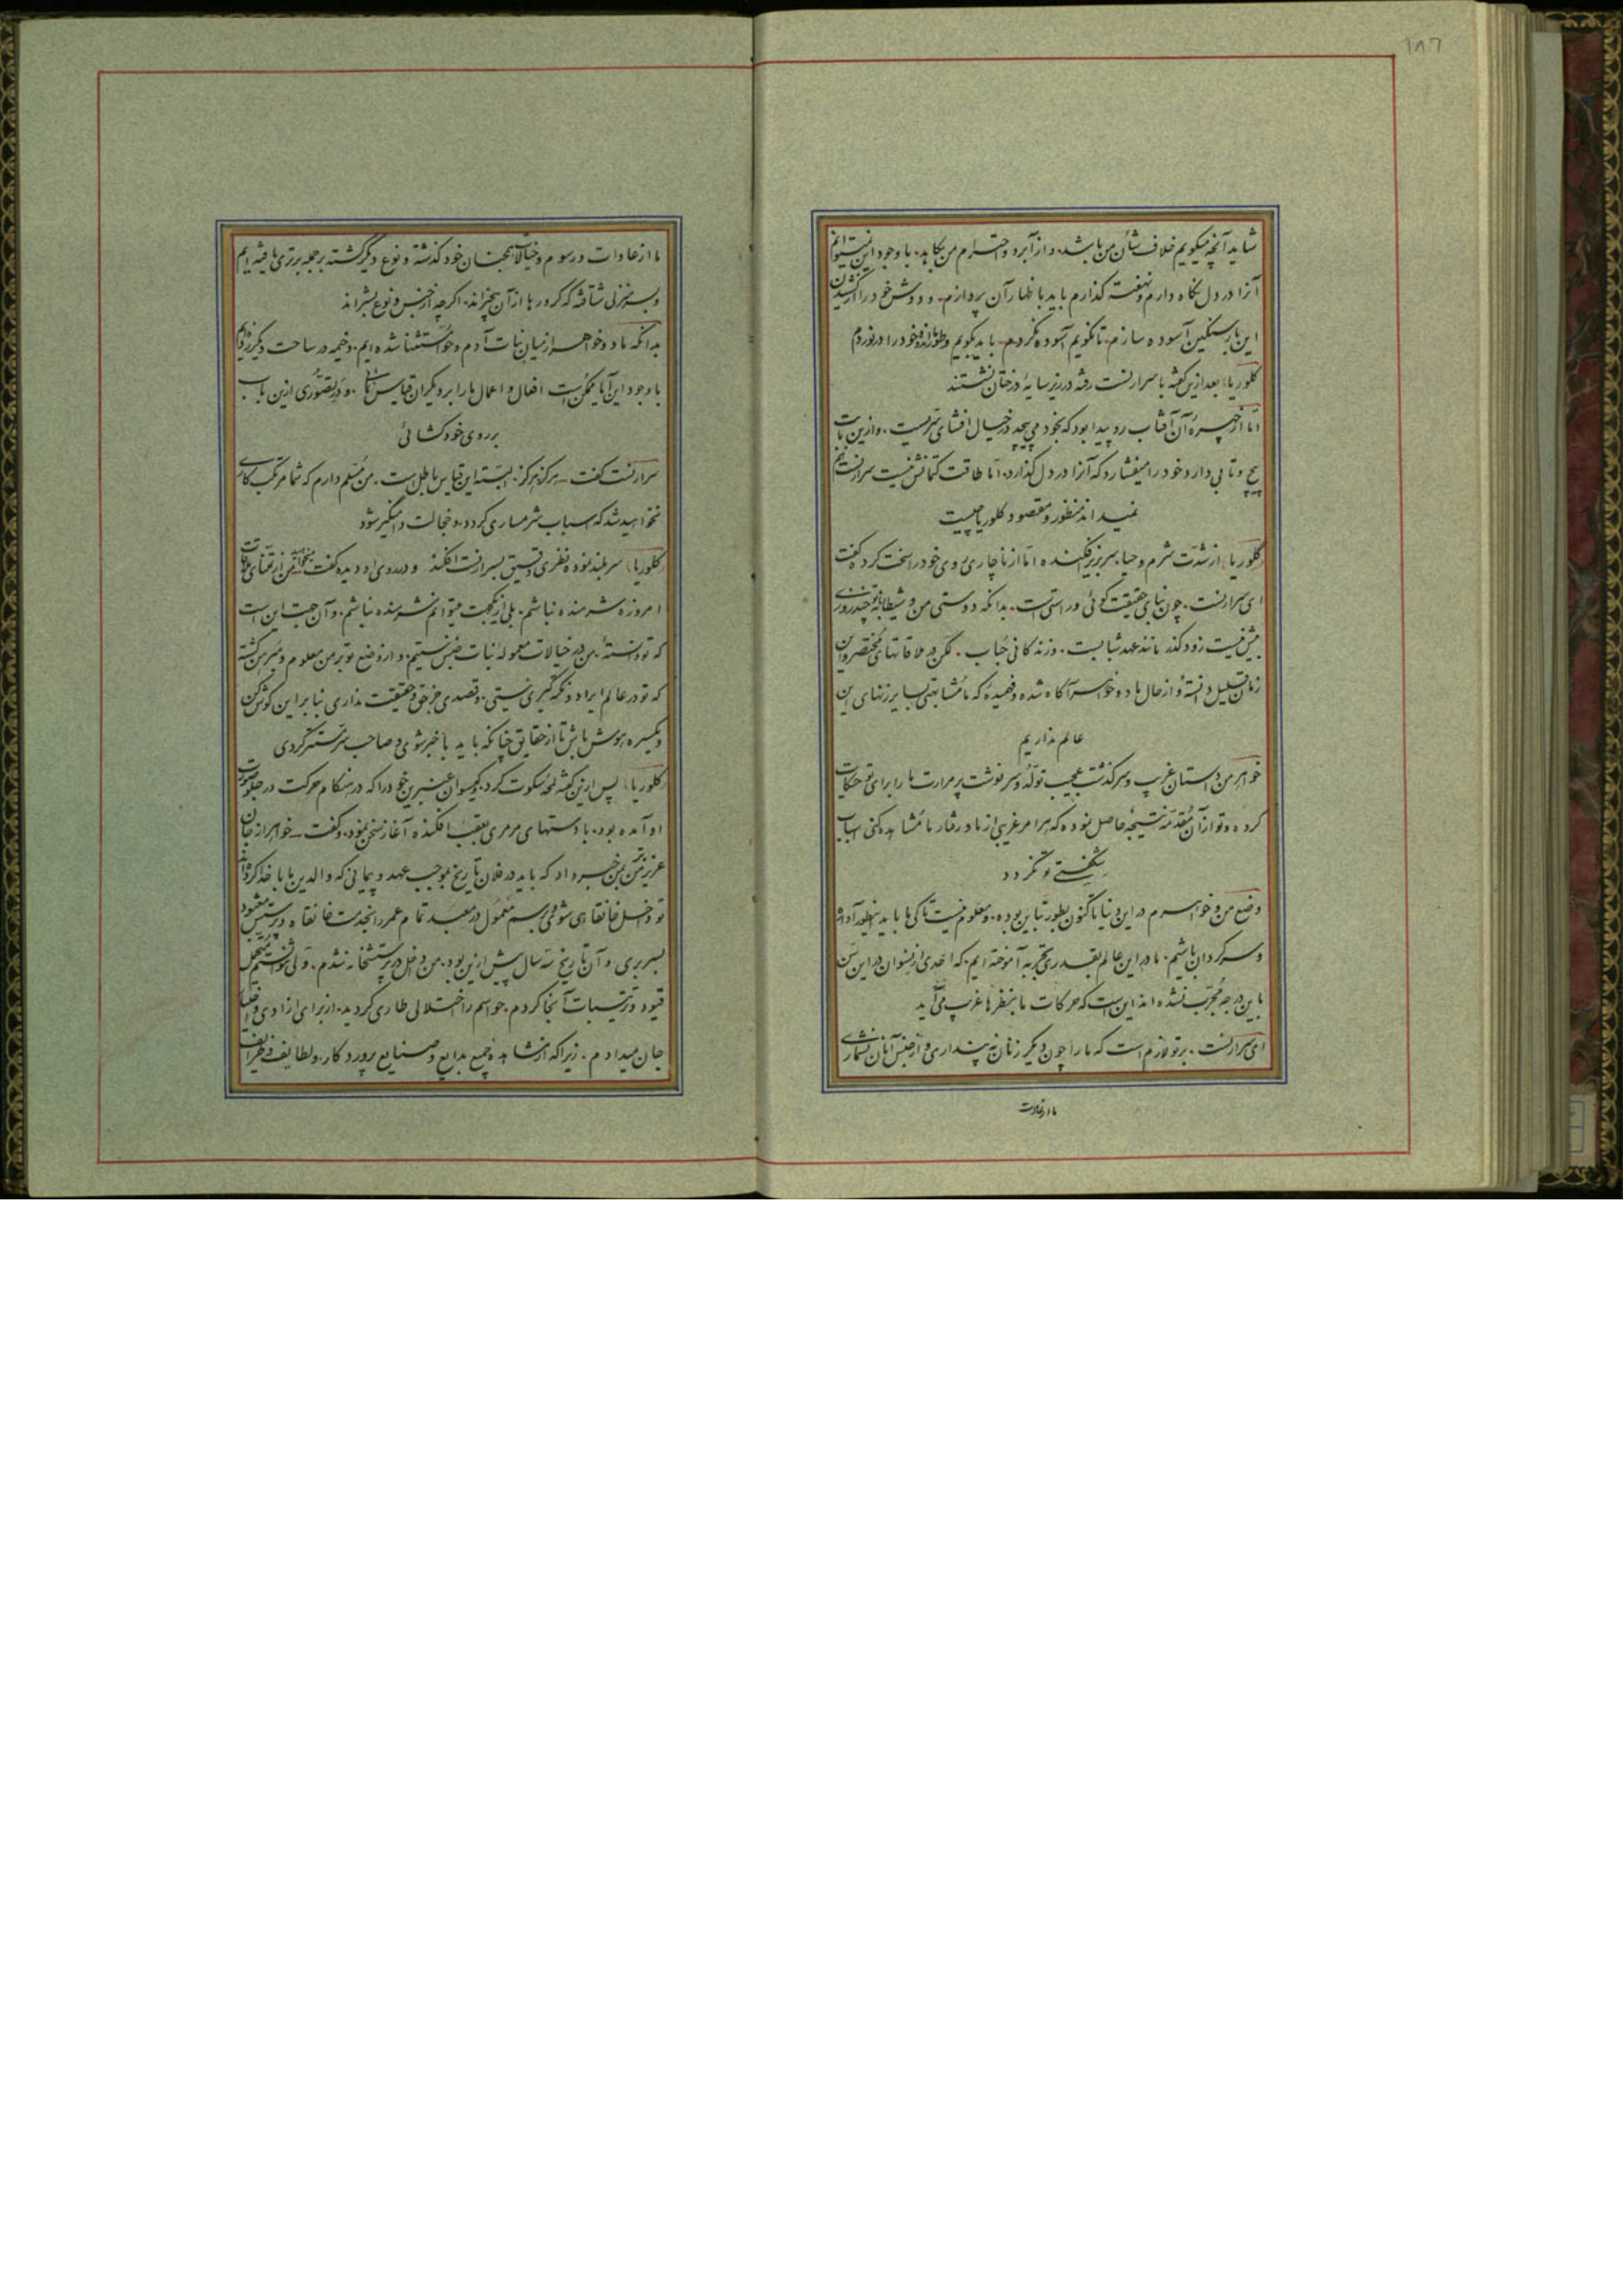 ۱۸۶
شاید آنچه میگویم خلاف شأن من باشد. و از آبرو و احترام من بکاهد. با وجود این نمیتوانم
آنرا در دل نگاه دارم و نهفته گذارم باید باظهار آن پردازم. و دوش خود را از کشیدن
این بار سنگین آسوده سازم. تا نگویم آسوده نگردم. باید بگویم و طومار اندوه خود را درنوردم
کلوریا بعد ازین گفته با سرارنست رفته در زیر سایۀ درختان نشستند
امّا از چهرۀ آن آفتاب رو پیدا بود که بخود می‌پیچد در خیال افشای سرّیست. و ازین بابت
پیچ و تابی دارد خود را میفشارد که آنرا در دل گذارد. امّا طاقت کتمانش نیست سرارنست هم
نمیداند منظور و مقصود کلوریا چیست
کلوریا از شدّت شرم و حیا. سر بزیر افکنده امّا از ناچاری روی خود را سخت کرده گفت
ای سرارنست. چون بنای حقیقت گوئی و راستی است. بدانکه دوستی من و شیطانه با تو چند روزی
بیش نیست زود گذر مانند عهد شبابست. و زندگانی حُباب. لکن در ملاقاتهای مختصر و این
زمان قلیل دانستۀ و از حال ما دو خواهر آگاه شده و فهمیدۀ که ما مُشابهتی بسایر زنهای این
عالم نداریم
خواهر من داستان غریب و سرگذشت عجیب تولّد و سرنوشت پر مرارت ما را برای تو حکایت
کرده و تو از آن مُقدّمه نتیجه حاصل نموده که هر امر غریبی از ما و رفتار ما مُشاهده کنی اسباب
شگفتی تو نگردد
وضع من و خواهرم در این دنیا تا کنون بطور تباین بوده. و معلوم نیست تا کی ما باید اینطور آواره
و سرگردان باشیم. ما در این عالم بقدری تجربه آموخته ایم. که احدی از نسوان در این سن
باین درجه مُجرّب نشده اند این است که حرکات ما بنظرها غریب می‌آید
ای سرارنست. بر تو لازم است که ما را چون دیگر زنان نه پنداری و از جنس آنان نشماری
ما از عادات
ما از عادات و رسوم و خیالات همجنسان خود گذشته و نوع دیگر گشته بر جمله برتری یافته ایم
و بسر منزلی شتافته که کرورها از آن بیخبراند. اگرچه از جنس و نوع بشراند
بدانکه ما دو خواهر از میان بنات آدم و حوّا مستثنا شده ایم. و خیمه در ساحت دیگر زده ایم
با وجود این آیا ممکن است افعال و اعمال ما را بر دیگران قیاس نمائی. و در تصوّری ازین باب
بر روی خود گشائی
سرارنست گفت - هرگز هرگز. البته این قیاس باطل است. من مُسلّم دارم که شما مرتکب کاری
نخواهید شد که اسباب شرمساری گردد. و خجالت دامنگیر شود
کلوریا سر بلند نموده نظری دقیق بسرارنست افکند و در روی او دیده گفت میخواهید من از تمنّای ملاقات
امروزه شرمنده نباشم. بلی از یکجهت میتوانم شرمنده نباشم. و آن جهت این است
که تو دانستۀ. من در خیالات معمولۀ بنات جنس نیستم. و از وضع تو بر من معلوم و مبرهن گشته
که تو در عالم ایراد و نکته گیری نیستی. و قصدی جز حق و حقیقت نداری بنابراین گوش کن
و یکسره هوش باش تا از حقایق چنانکه باید باخبر شوی و صاحب سرّ مستتر گردی
کلوریا پس از این گفته لمحۀ سکوت کرد. گیسوان عنبرین خود را که در هنگام حرکت در جلو صورت
او آمده بود. با دستهای مرمری بعقب افکنده آغاز سخن نمود. و گفت - خواهر از جان
عزیزتر من بمن خبر داد که باید در فلان تاریخ بموجب عهد و پیمانی که والدین ما با خدا کرده اند
تو داخل خانقاهی شوی. و برسم معمول در معبد تمام عمر را بخدمت خانقاه و پرستیدن معبود
بسر بری و آن تاریخ سه سال پیش ازین بود. من داخل در پرستشخانه نشدم. ولی نتوانستم تحمل
قیود و ترتیبات آنجا کردم. حواسم را اختلالی طاری گردید. از برای ازادی و اختیار
جان میدادم. زیرا که از مشاهدۀ جمیع بدایع و صنایع پروردگار. و لطایف و ظرایف